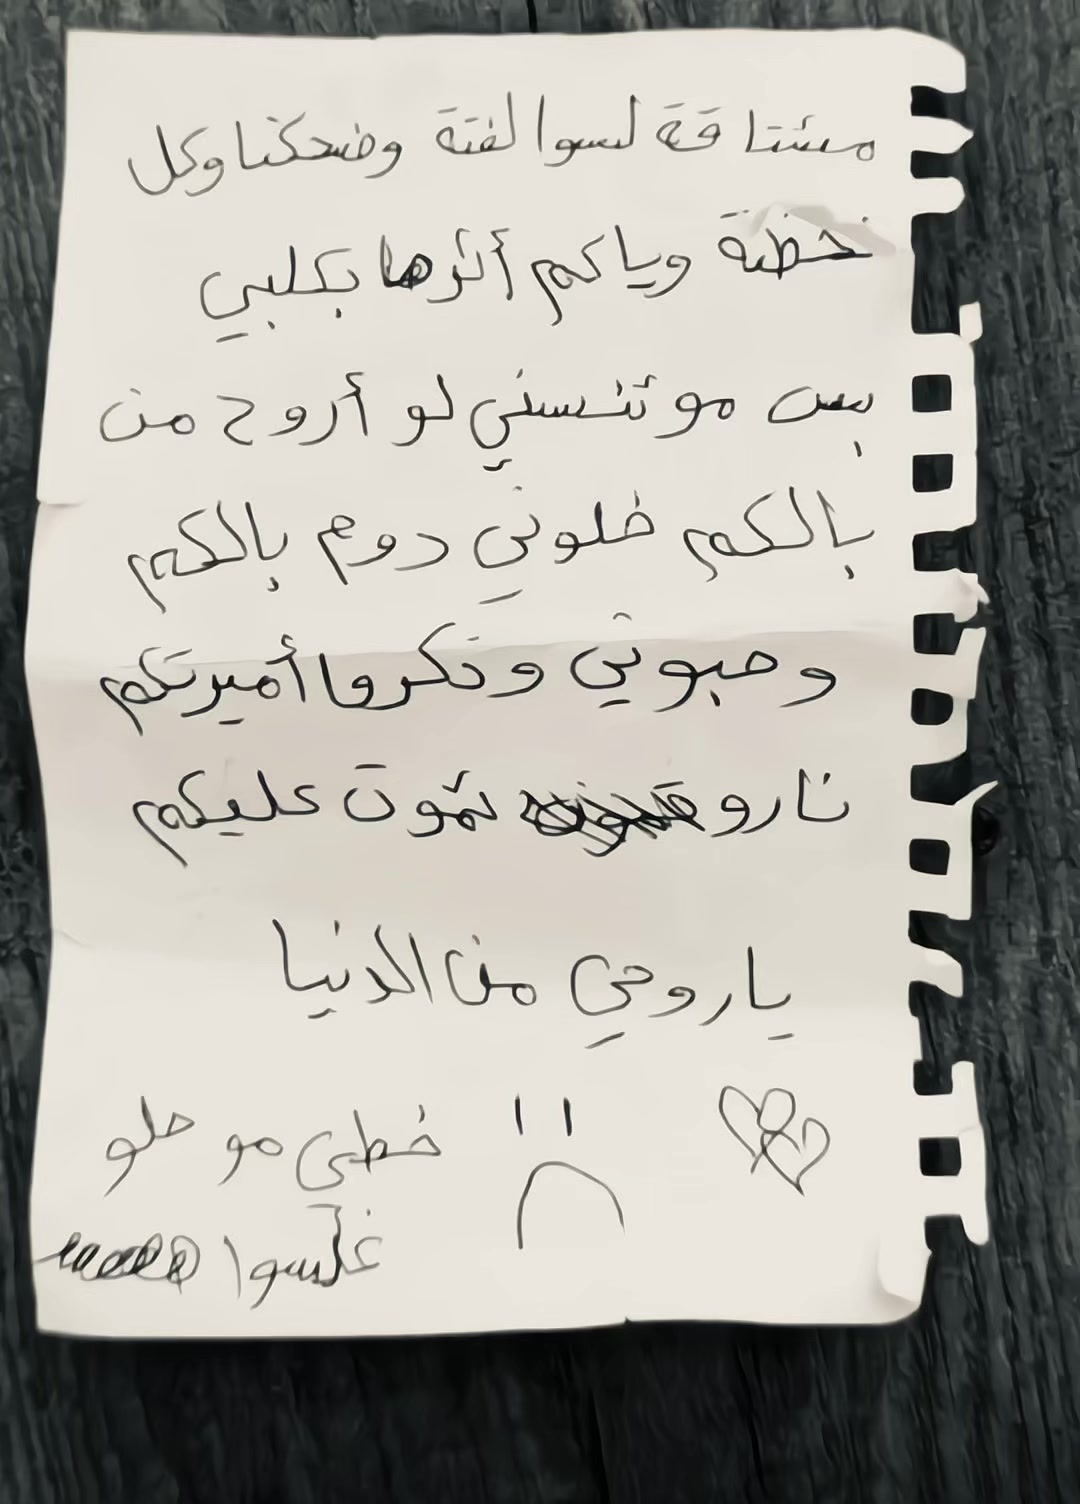 مشتاقة لسوالفتة وضحكنا وكل
لحظة وياكم أثرها بكلبي
بس مو تنسني لو أروح من
بالكم خلوني دوم بالكم
وحبوني وذكروا أميرتكم
نارو تموت عليكم
ياروحي من الدنيا
خطي مو حلو
غلسوا